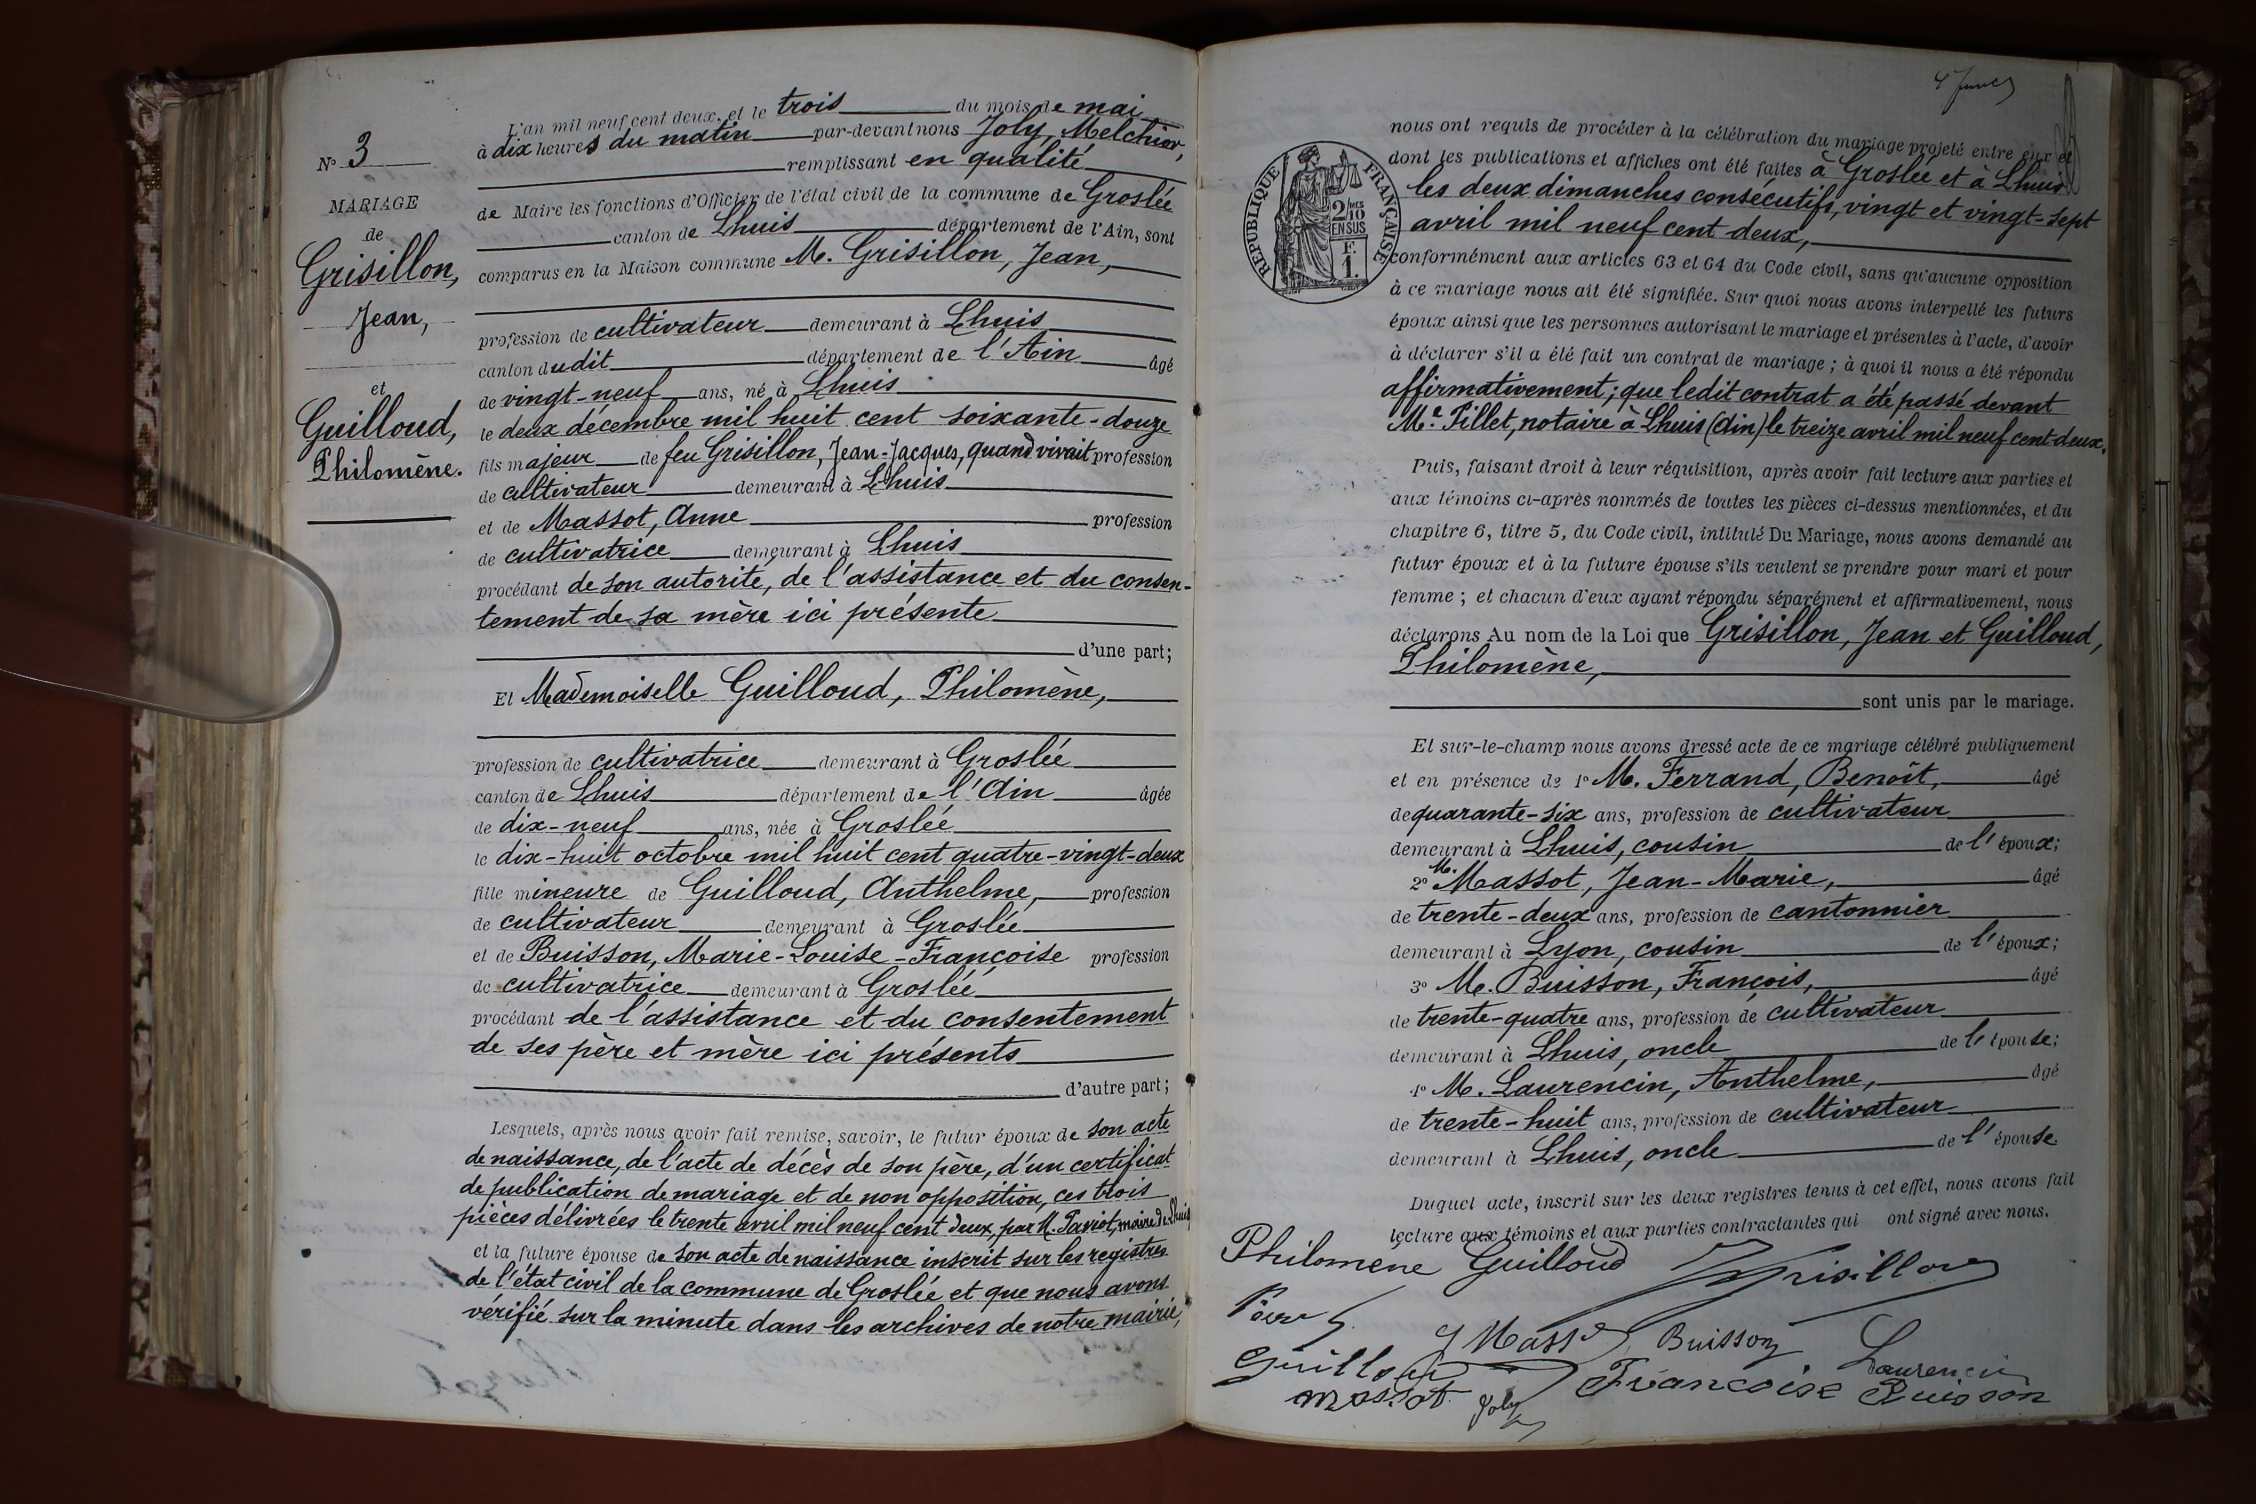 L'an mil neuf cent deux, et le trois du mois de mai
à dix heures du matin par-devant nous Joly, Melchior,
remplissant en qualité
de Maire les fonctions d'Officier de l'état civil de la commune de Groslée
canton de Lhuis département de l'Ain, sont
comparus en la Maison commune M. Grisillon, Jean,
profession de cultivateur demeurant à Lhuis
canton dudit département de l'Ain âgé
de vingt-neuf ans, né à Lhuis
le deux décembre mil huit cent soixante-douze
fils majeur de feu Grisillon, Jean-Jacques, quand vivait profession
de cultivateur demeurant à Lhuis
et de Massot, Anne profession
de cultivatrice demeurant à Lhuis
procédant de son autorité, de l'assistance et du consen-
tement de sa mère ici présente
d'une part;
Et Mademoiselle Guilloud, Philomène,
profession de cultivatrice demeurant à Groslée
canton de Lhuis département de l'Ain âgée
de dix-neuf ans, née à Groslée
le dix-huit octobre mil huit cent quatre-vingt-deux
fille mineure de Guilloud, Anthelme, profession
de cultivateur demeurant à Groslée
et de Buisson, Marie-Louise-Françoise profession
de cultivatrice demeurant à Groslée
procédant de l'assistance et du consentement
de ses père et mère ici présents
d'autre part;
Lesquels, après nous avoir fait remise, savoir, le futur époux de son acte
de naissance, de l'acte de décès de son père, d'un certificat
de publication de mariage et de non opposition, ces trois
pièces délivrées le trente avril mil neuf cent deux, par M. Paviot, maire de Lhuis
et la future épouse de son acte de naissance inscrit sur les registres
de l'état civil de la commune de Groslée et que nous avons
vérifié sur la minute dans les archives de notre mairie,
No 3
MARIAGE
de
Grisillon,
Jean,
et
Guilloud,
Philomène.
RÉPUBLIQUE FRANÇAISE
2/10
EN SUS
F.
1.
nous ont requis de procéder à la célébration du mariage projeté entre eux et
dont les publications et affiches ont été faites à Groslée et à Lhuis
les deux dimanches consécutifs, vingt et vingt-sept
avril mil neuf cent deux,
conformément aux articles 63 et 64 du Code civil, sans qu'aucune opposition
à ce mariage nous ait été signifiée. Sur quoi nous avons interpellé les futurs
époux ainsi que les personnes autorisant le mariage et présentes à l'acte, d'avoir
à déclarer s'il a été fait un contrat de mariage; à quoi il nous a été répondu
affirmativement; que ledit contrat a été passé devant
Me Pillet, notaire à Lhuis (Ain) le treize avril mil neuf cent deux.
Puis, faisant droit à leur réquisition, après avoir fait lecture aux parties et
aux témoins ci-après nommés de toutes les pièces ci-dessus mentionnées, et du
chapitre 6, titre 5, du Code civil, intitulé Du Mariage, nous avons demandé au
futur époux et à la future épouse s'ils veulent se prendre pour mari et pour
femme; et chacun d'eux ayant répondu séparément et affirmativement, nous
déclarons Au nom de la Loi que Grisillon, Jean et Guilloud,
Philomène,
sont unis par le mariage.
Et sur-le-champ nous avons dressé acte de ce mariage célébré publiquement
et en présence de 1o M. Ferrand, Benoît, âgé
de quarante-six ans, profession de cultivateur
demeurant à Lhuis, cousin de l'époux;
2o M. Massot, Jean-Marie, âgé
de trente-deux ans, profession de cantonnier
demeurant à Lyon, cousin de l'époux;
3o M. Buisson, François, âgé
de trente-quatre ans, profession de cultivateur
demeurant à Lhuis, oncle de l'épouse;
4o M. Laurencin, Anthelme, âgé
de trente-huit ans, profession de cultivateur
demeurant à Lhuis, oncle de l'épouse
Duquel acte, inscrit sur les deux registres tenus à cet effet, nous avons fait
lecture aux témoins et aux parties contractantes qui ont signé avec nous.
Philomène Guilloud Grisillon
Buisson Laurencin
Guilloud Françoise Buisson
Massot Joly